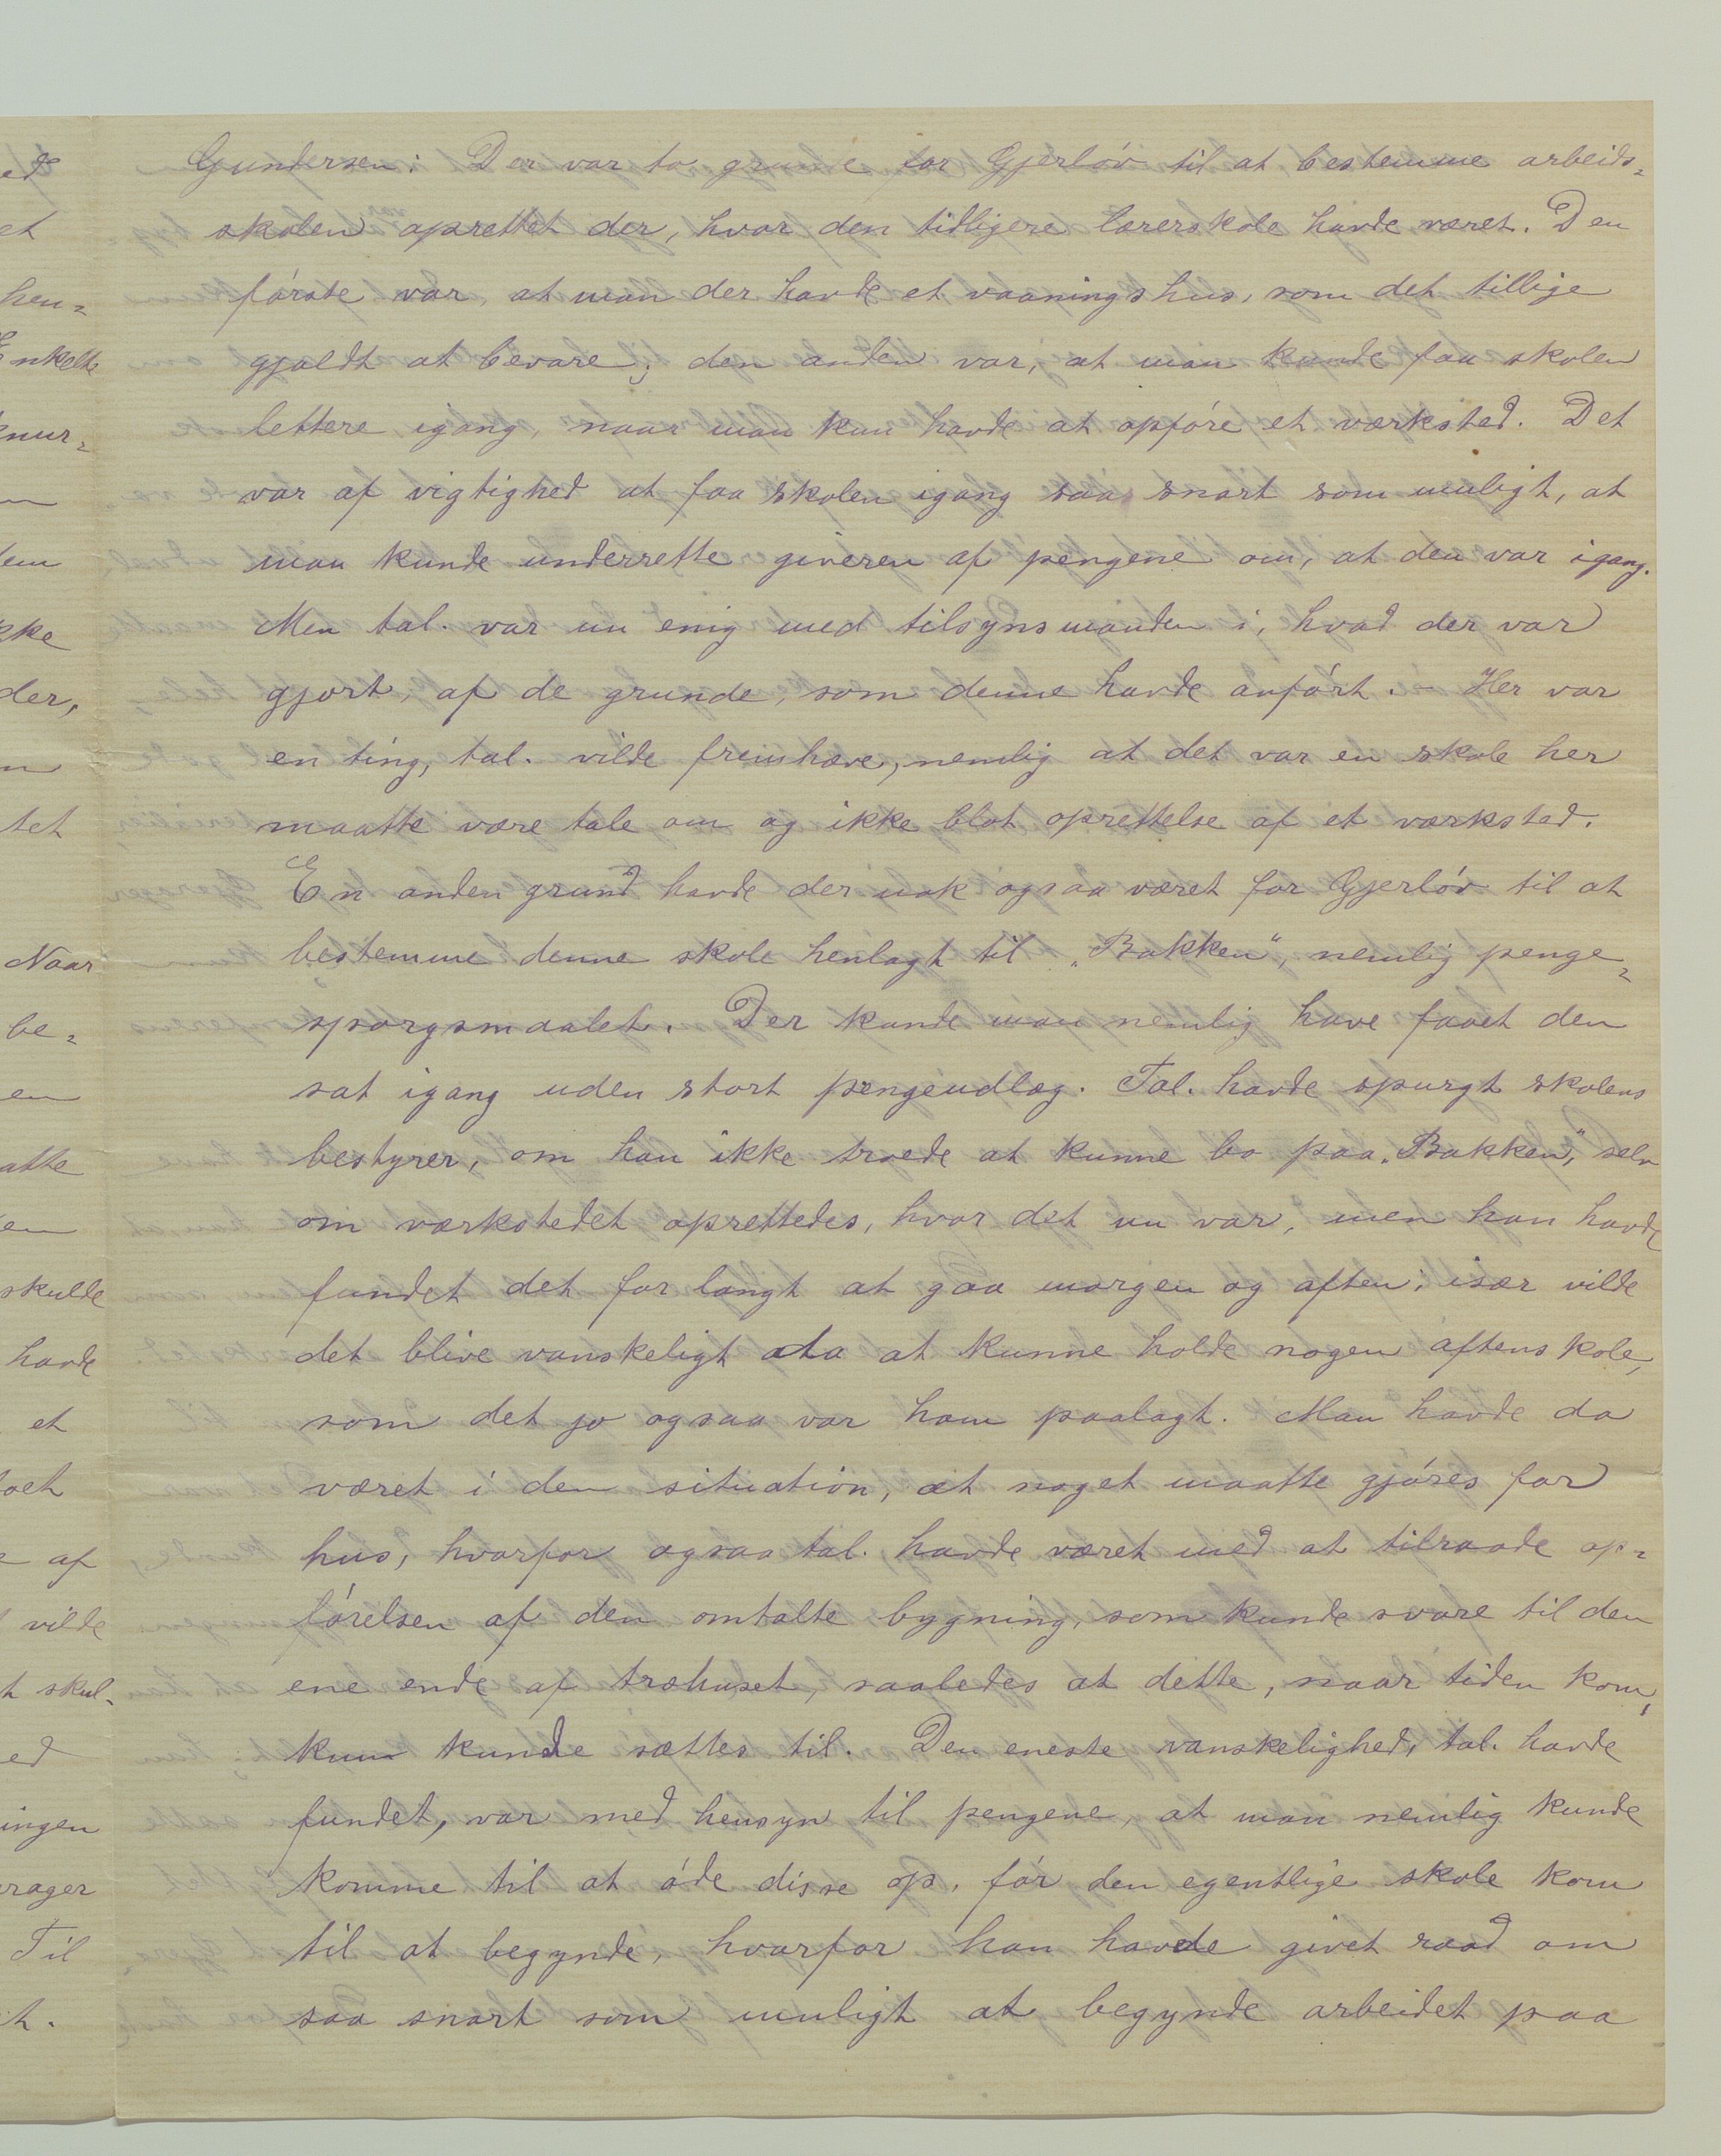 Gundersen: Der var to grunde for Gjerløv til at bestemme arbeids-
skolen oprettet der, hvor den tidligere lærerskole havde været. Den
første var, at man der havde et vaaningshus, som det tillige
gjaldt at bevare; den anden var, at man kunde faa skolen
lettere igang, naar man kun havde at opføre et værksted. Det
var af vigtighed at faa skolen igang saa snart som muligt, at
man kunde underrette giveren af pengene om, at den var igang.
Men tal. var nu enig med tilsynsmanden i, hvad der var
gjort, af de grunde, som denne havde anført. Her var
en ting, tal. vilde fremhæve, nemlig at det var en skole her
maatte være tale om og ikke blot oprettelse af et værksted.
En anden grund havde der nok ogsaa været for Gjerløv til at
bestemme denne skole henlagt til „Bakken“, nemlig penge-
spørgsmaalet. Der kunde man nemlig have faaet den
sat igang uden stort pengeudlæg. Tal. havde spurgt skolens
bestyrer, om han ikke troede at kunne bo paa „Bakken“, selv
om værkstedet oprettedes, hvor det nu var, men han havde
fundet det for langt at gaa morgen og aften; især vilde
det blive vanskeligt da at kunne holde nogen aftenskole,
som det jo ogsaa var ham paalagt. Man havde da
været i den situation, at noget maatte gjøres for
hus, hvorfor ogsaa tal. havde været med at tilraade op-
førelsen af den omtalte bygning, som kunde svare til den
ene ende af træhuset, saaledes at dette, naar tiden kom,
kun kunde sættes til. Den eneste vanskelighed, tal. havde
fundet, var med hensyn til pengene, at man nemlig kunde
komme til at øde disse op, før den egentlige skole kom
til at begynde, hvorfor han havde givet raad om
saa snart som muligt at begynde arbeidet paa